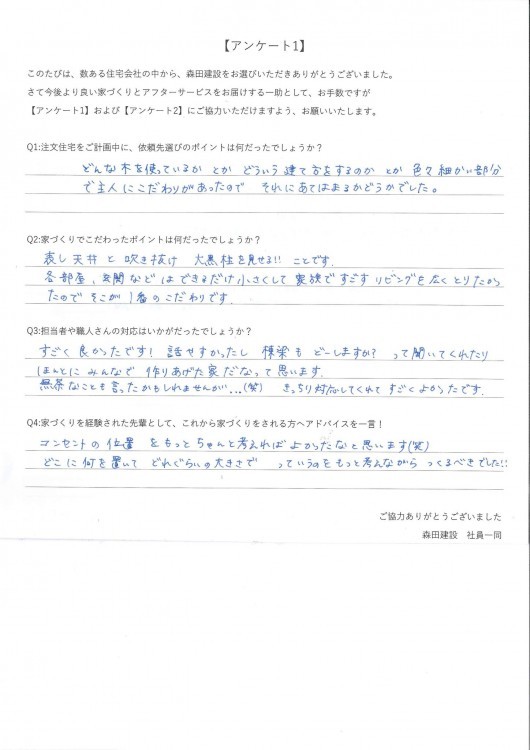 【アンケート1】
このたびは、数ある住宅会社の中から、森田建設をお選びいただきありがとうございました。
さて今後より良い家づくりとアフターサービスをお届けする一助として、お手数ですが
【アンケート1】および【アンケート2】にご協力いただけますよう、お願いいたします。
Q1:注文住宅をご計画中に、依頼先選びのポイントは何だったでしょうか?
どんな木を使っているか とか どういう建て方をするのか とか 色々細かい部分
で主人にこだわりがあったので それにあてはまるかどうかでした。
Q2:家づくりでこだわったポイントは何だったでしょうか?
表し天井と吹き抜け 大黒柱を見せる!! ことです。
各部屋、玄関などはできるだけ小さくして家族ですごすリビングを広くとりたかっ
たのでそこが1番のこだわりです。
Q3:担当者や職人さんの対応はいかがだったでしょうか?
すごく良かったです! 話せすかったし 棟梁も どーしますか? って聞いてくれたり
ほんとにみんなで作りあげた家だなって思います。
無茶なことも言ったかもしれませんが…(笑) きっちり対応してくれてすごくよかったです。
Q4:家づくりを経験された先輩として、これから家づくりをされる方へアドバイスを一言!
コンセントの位置をもっとちゃんと考えればよかったなと思います(笑)
どこに何を置いて どれぐらいの大きさで っていうのをもっと考えながら つくるべきでした!!
ご協力ありがとうございました
森田建設 社員一同